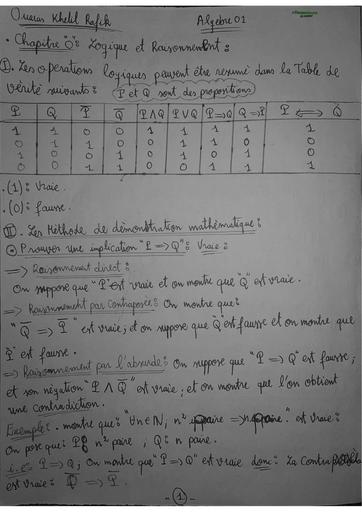 Oueras Khelil Rafik
Algebre 01
. Chapitre "0": Logique et Raisonnement:
I. Les operations logiques peuvent être resumé dans la Table de
vérité suivante: (P et Q sont des propositions)
P Q P̅ Q̅ P∧Q P∨Q P⇒Q Q⇒P P ⟺ Q
1 1 0 0 1 1 1 1 1
0 1 1 0 0 1 1 0 0
1 0 0 1 0 1 0 1 0
0 0 1 1 0 0 1 1 1
. (1): Vraie.
. (0): fausse.
II. Les Méthode de démonstration mathématique:
Prouver une implication "P ⇒ Q": Vraie:
⇒ Raisonnement direct:
On suppose que "P" est vraie et on montre que "Q" est vraie.
⇒ Raisonnement par Contraposée: On montre que:
"Q̅ ⇒ P̅" est vraie; et on suppose que Q est fausse et on montre que
P est fausse.
⇒ Raisonnement par l'absurde: On suppose que "P ⇒ Q" est fausse;
et son négation "P ∧ Q̅" est vraie; et on montre que l'on obtient
une contradiction.
Exemple: . montre que: "∀n∈ℕ, n² paire ⇒ n paire." est vraie:
On pose que: P: n² paire ; Q: n paire.
i.e: P ⇒ Q; On montre que "P ⇒ Q" est vraie donc: La Contraposée
est vraie: Q̅ ⇒ P̅.
- (1) -